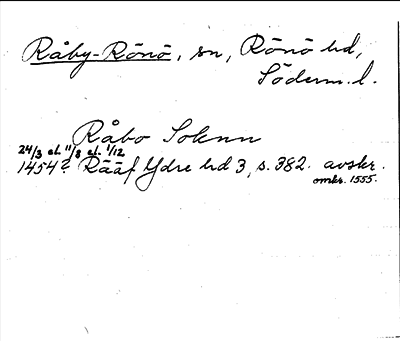 Råby-Rönö, sn, Rönö hd,
Söderm. l.
Råbo Soknn
24/3 el. 11/8 el. 1/12
1454? Rääf Ydre hd 3, s. 382. avskr.
omkr. 1555.